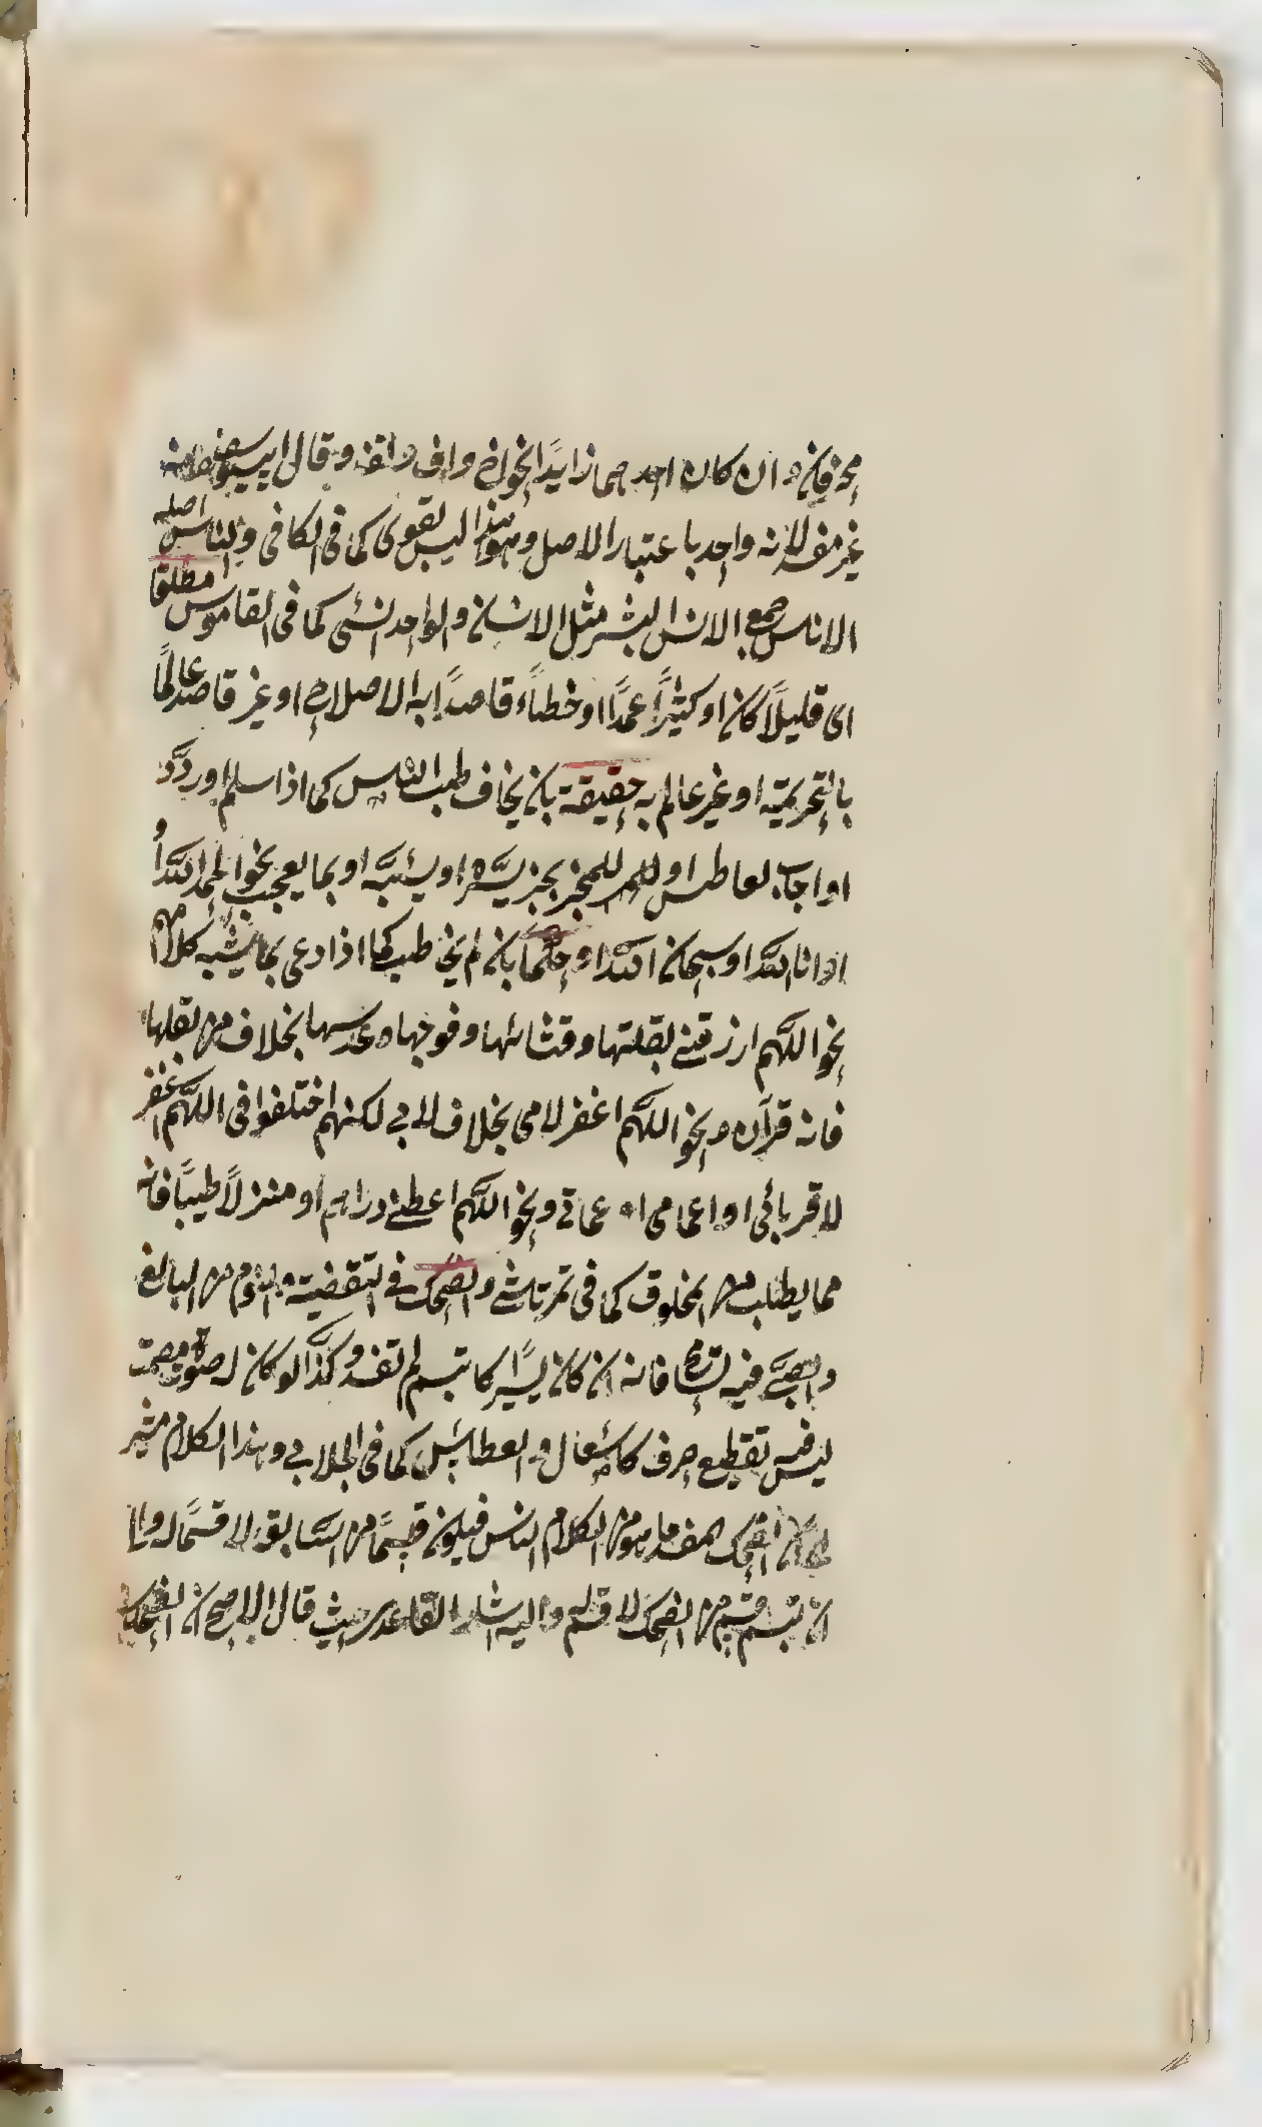 محرفان وان كان احدهما زايدًا نحو اخ واف واقف وقال ابو يوسف انه
غير مفسد لانه واحد باعتبار الاصل وهو هذا ليس لقوى كما فى الكافى والناس اصله
الاناس جمع الانس البشر مثل الانسان والواحد انسى كما فى القاموس مطلقا
اى قليلاً كان او كثيرًا عمدًا او خطاءً قاصدًا به الاصلاح او غير قاصد عالمًا
بالتحريمة او غير عالم به حقيقة بان يخاف طب الناس كما اذا سلم او ردّ
او اجاب لعاطس او للمخبر بخبر يسره او يسئه او بما يعجب نحو الحمد لله
او انا لله او سبحان الله او حكمًا بان لم يخاطب كما اذا دعى بما يشبه كلامهم
نحو اللهم ارزقنى بقلتها وقثائها وفومها وعدسها بخلاف من بقلها
فانه قرآن ونحو اللهم اغفر لامى بخلاف لابى لكنهم اختلفوا فى اللهم اغفر
لاقربائى او اعمامى او عماتى ونحو اللهم اعطنى دراهم او منزلاً طيبًا فانه
مما يطلب من المخلوق كما فى تمرتاشى والضحك فى اليقضية والنوم من البالغ
والصبى فيه فانه ان كان يسيرًا كالتبسم لم تفسد وكذا لو كان له صوت
ليس فيه تقطيع حرف كالسعال والعطاس كما فى الجلابى وهذا الكلام مشير
الى ان الضحك المفسد ما هو من الكلام الناس فيكون قسمًا من السابق لا قسمًا له والى
ان تبسم قسم من الضحك لا قسم واليه اشار القاعدى حيث قال الاصح ان الضحك